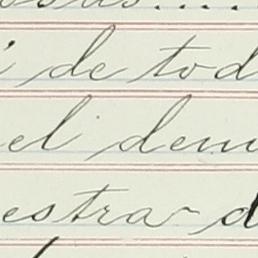 osas....
i de tod
el dem
estra d